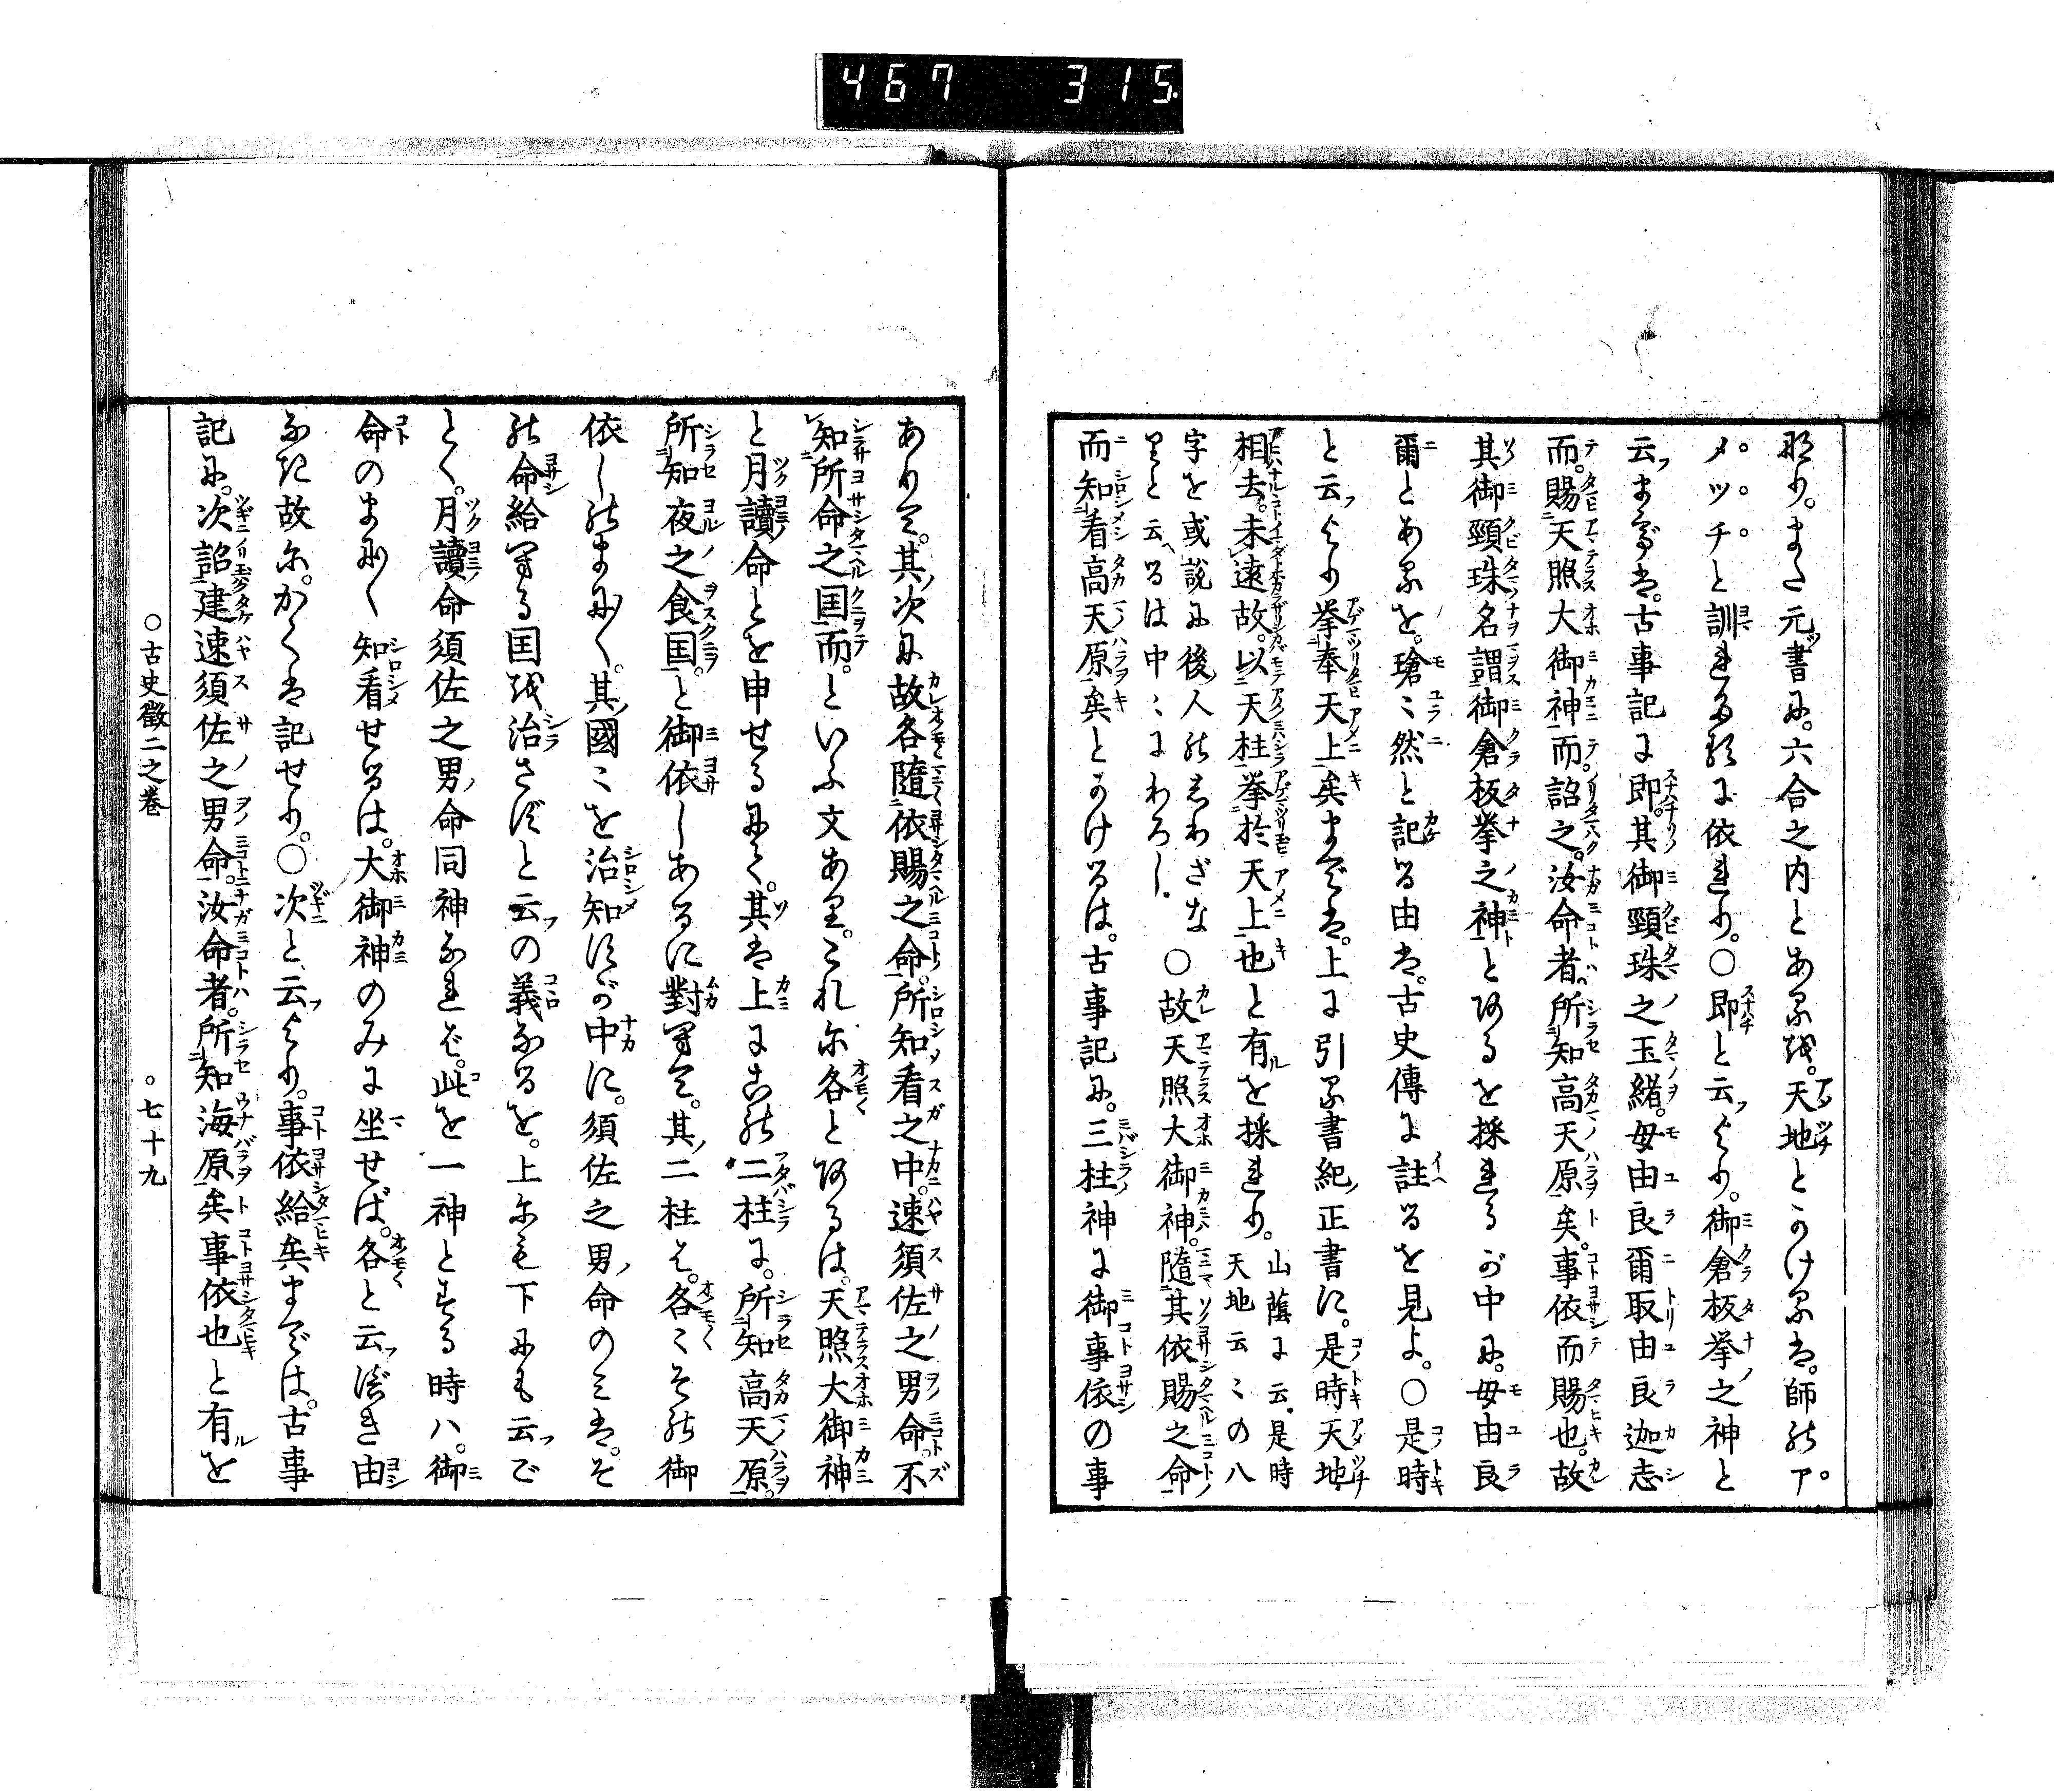 467 315.
那り。また元書に。六合之内とある を。天地とつけるは。師のア
メツチと訓れたるに依れり。〇即と云より。御倉板挙之神と
云までは。古事記に即。其御頸珠之玉緒。母由良爾取由良迦志
而。賜天照大御神而。詔之。汝命者。所知高天原矣。事依而賜也。故
其御頸珠名謂御倉板挙之神とあるを採れるが中に。母由良
爾とあるを。瑲〻然と記る由は。古史傳に註るを見よ。〇是時
と云より挙奉天上矣までは。上に引る書紀ノ正書に。是時天地
相去。未遠故。以天柱挙於天上也と有を採れり。山蔭に云。是時天地云〻の八
字を或説に後人のしわざなりと云るは中〻にわろし。〇故天照大御神。随其依賜之命
而知看高天原矣とつけるは。古事記に。三柱神に御事依の事
ありて。其次に故各随依賜之命。所知看之中。速須佐之男命不
知所命之国而。といふ文あり。これに各とあるは。天照大御神
と月讀命とを申せるにて。其は上にこの二柱に。所知高天原。
所知夜之食国。と御依しあるに對へて。其二柱は。各〻その御
依しのまにまに。其國〻を治知すが中に。須佐之男命のみは。そ
の命給へる国を治さずと云の義なるを。上にも下にも云で
とく。月讀命須佐之男命同神なれば。此を一神とする時ハ。御
命のまにまに知看せるは。大御神のみに坐せば。各と云べき由
なき故に。かくは記せり。〇次と云より。事依給矣までは。古事
記に。次詔建速須佐之男命。汝命者。所知海原矣事依也と有を
〇古史徴二之巻 。七十九